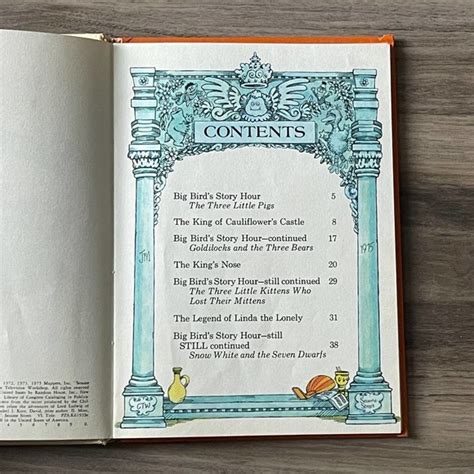 CONTENTS
Big Bird's Story Hour 5
The Three Little Pigs
The King of Cauliflower's Castle 8
Big Bird's Story Hour—continued 17
Goldilocks and the Three Bears
The King's Nose 20
Big Bird's Story Hour—still continued 29
The Three Little Kittens Who
Lost Their Mittens
The Legend of Linda the Lonely 31
Big Bird's Story Hour—still
STILL continued 38
Snow White and the Seven Dwarfs
JM
1975
CTW
Sesame
Street